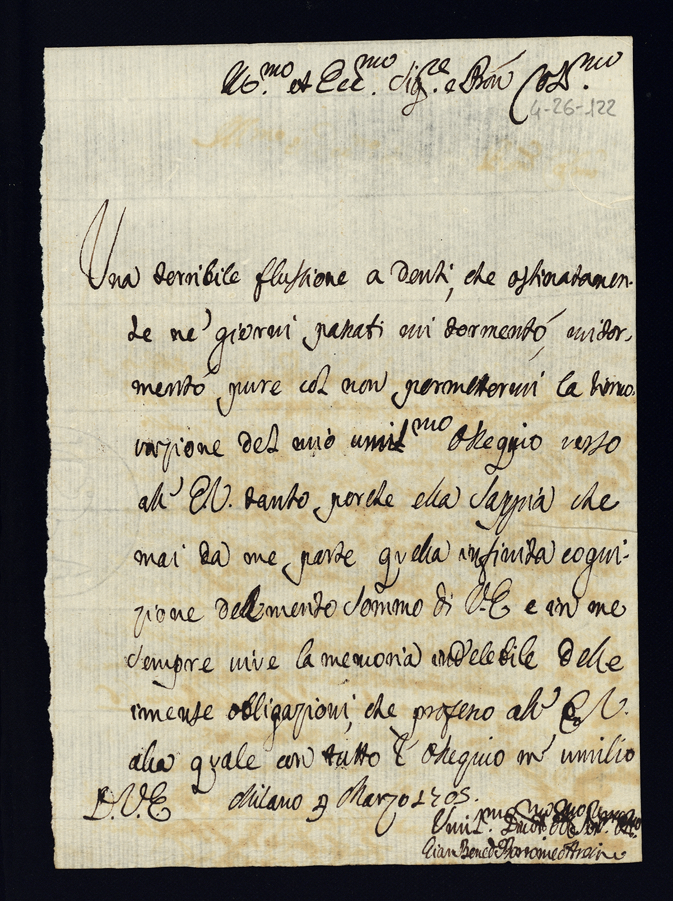 Ill.mo et Ecc.mo Sig.re e Pron Col.mo
4-26-122
Una terribile flussione a denti, che ostinatamen-
te ne' giorni passati mi tormentò, mi tor-
mentò pure col non permettermi la rinno-
vazione del mio umil.mo ossequio verso
all' E.V. tanto perche ella sappia che
mai da me parte quella infinita cogni-
zione del merito sommo di V.E e in me
sempre vive la memoria indelebile delle
immense obligazioni, che professo all' E.V.
alla quale con tutto l' ossequio m' umilio
D.V.E Milano 9 Marzo 1705.
Umil.mo Div.mo Obl.mo
Gian Bened Borromeo Arese